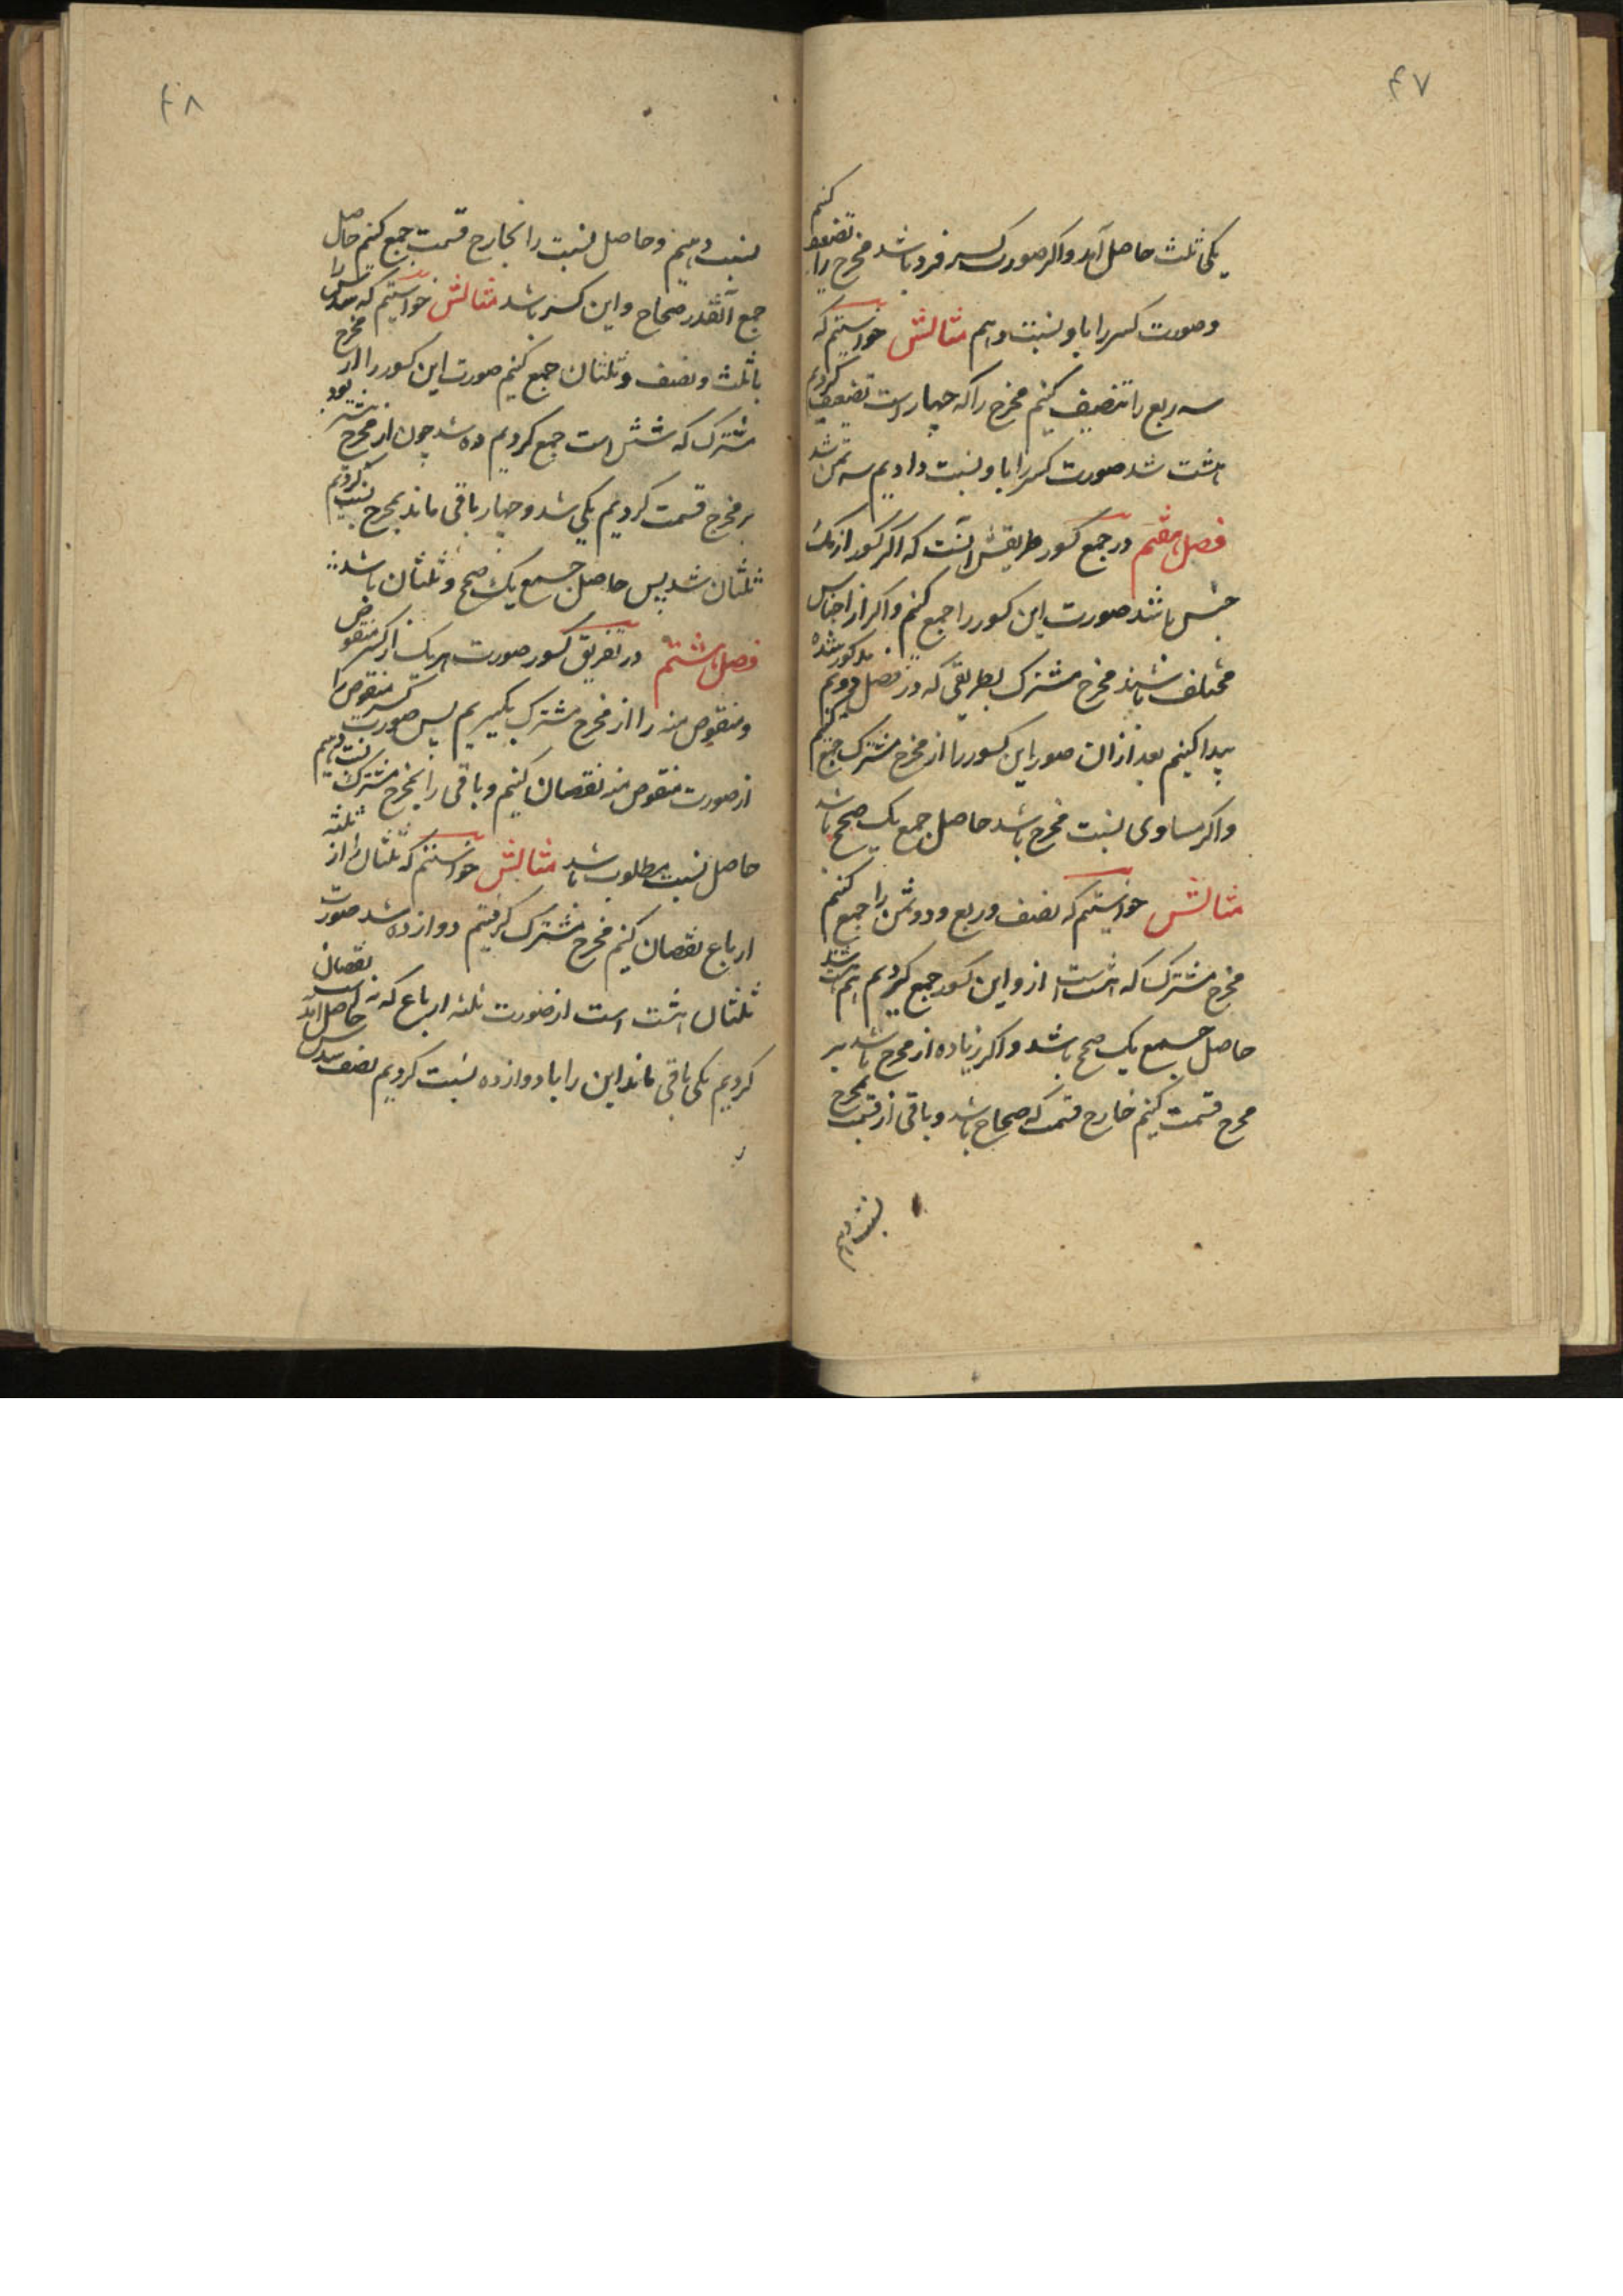 ۴۷
یکی ثلث حاصل آمد و اکر صورت کسر فرد باشد مخرج را تضعیف کنیم
و صورت کسر را باو نسبت دهیم مثالش خواستیم که
سه ربع را تنصیف کنیم مخرج را که چهار است تضعیف کردیم
هشت شد صورت کسر را باو نسبت دادیم سه ثمن شد
فصل هفتم در جمع کسور طریقش آنست که اکر کسور از یک
جنس باشد صورت این کسور را جمع کنیم و اکر از اجناس
مختلف باشند مخرج مشترک بطریقی که در فصل دویم مذکور شده
پیدا کنیم بعد ازان صور این کسور را از مخرج مشترک جمع کنیم
و اکر مساوی نسبت مخرج باشد حاصل جمع یک صحیح باشد
مثالش خواستیم که نصف و ربع و دو ثمن را جمع کنیم
مخرج مشترک که هشت است ازو این کسور جمع کردیم هم هشت شد
حاصل جمع یک صحیح باشد و اکر زیاده از مخرج باشد بر
مخرج قسمت کنیم خارج قسمت که صحاح باشد و باقی از قسمت بمخرج
نسبت دهیم
۴۸
نسبت دهیم و حاصل نسبت را بخارج قسمت جمع کنیم حاصل
جمع آنقدر صحاح و این کسر باشد مثالش خواستیم که سدس را
با ثلث و نصف و ثلثان جمع کنیم صورت این کسور را از مخرج
مشترک که شش است جمع کردیم ده شد چون از مخرج بیشتر بود
بر مخرج قسمت کردیم یکی شد و چهار باقی ماند بمخرج نسبت کردیم
ثلثان شد پس حاصل جمع یک صحیح و ثلثان باشد
فصل هشتم در تفریق کسور صورت هر یک از کسر منقوص
و منقوص منه را از مخرج مشترک بکیریم پس صورت کسر منقوص را
از صورت منقوص منه نقصان کنیم و باقی را بمخرج مشترک نسبت دهیم
حاصل نسبت مطلوب باشد مثالش خواستیم که ثلثان را از ثلثه
ارباع نقصان کنیم مخرج مشترک کرفتیم دوازده شد صورت
ثلثان هشت است از صورت ثلثه ارباع که نه است نقصان
کردیم یکی باقی ماند این را با دوازده نسبت کردیم نصف سدس حاصل آمد